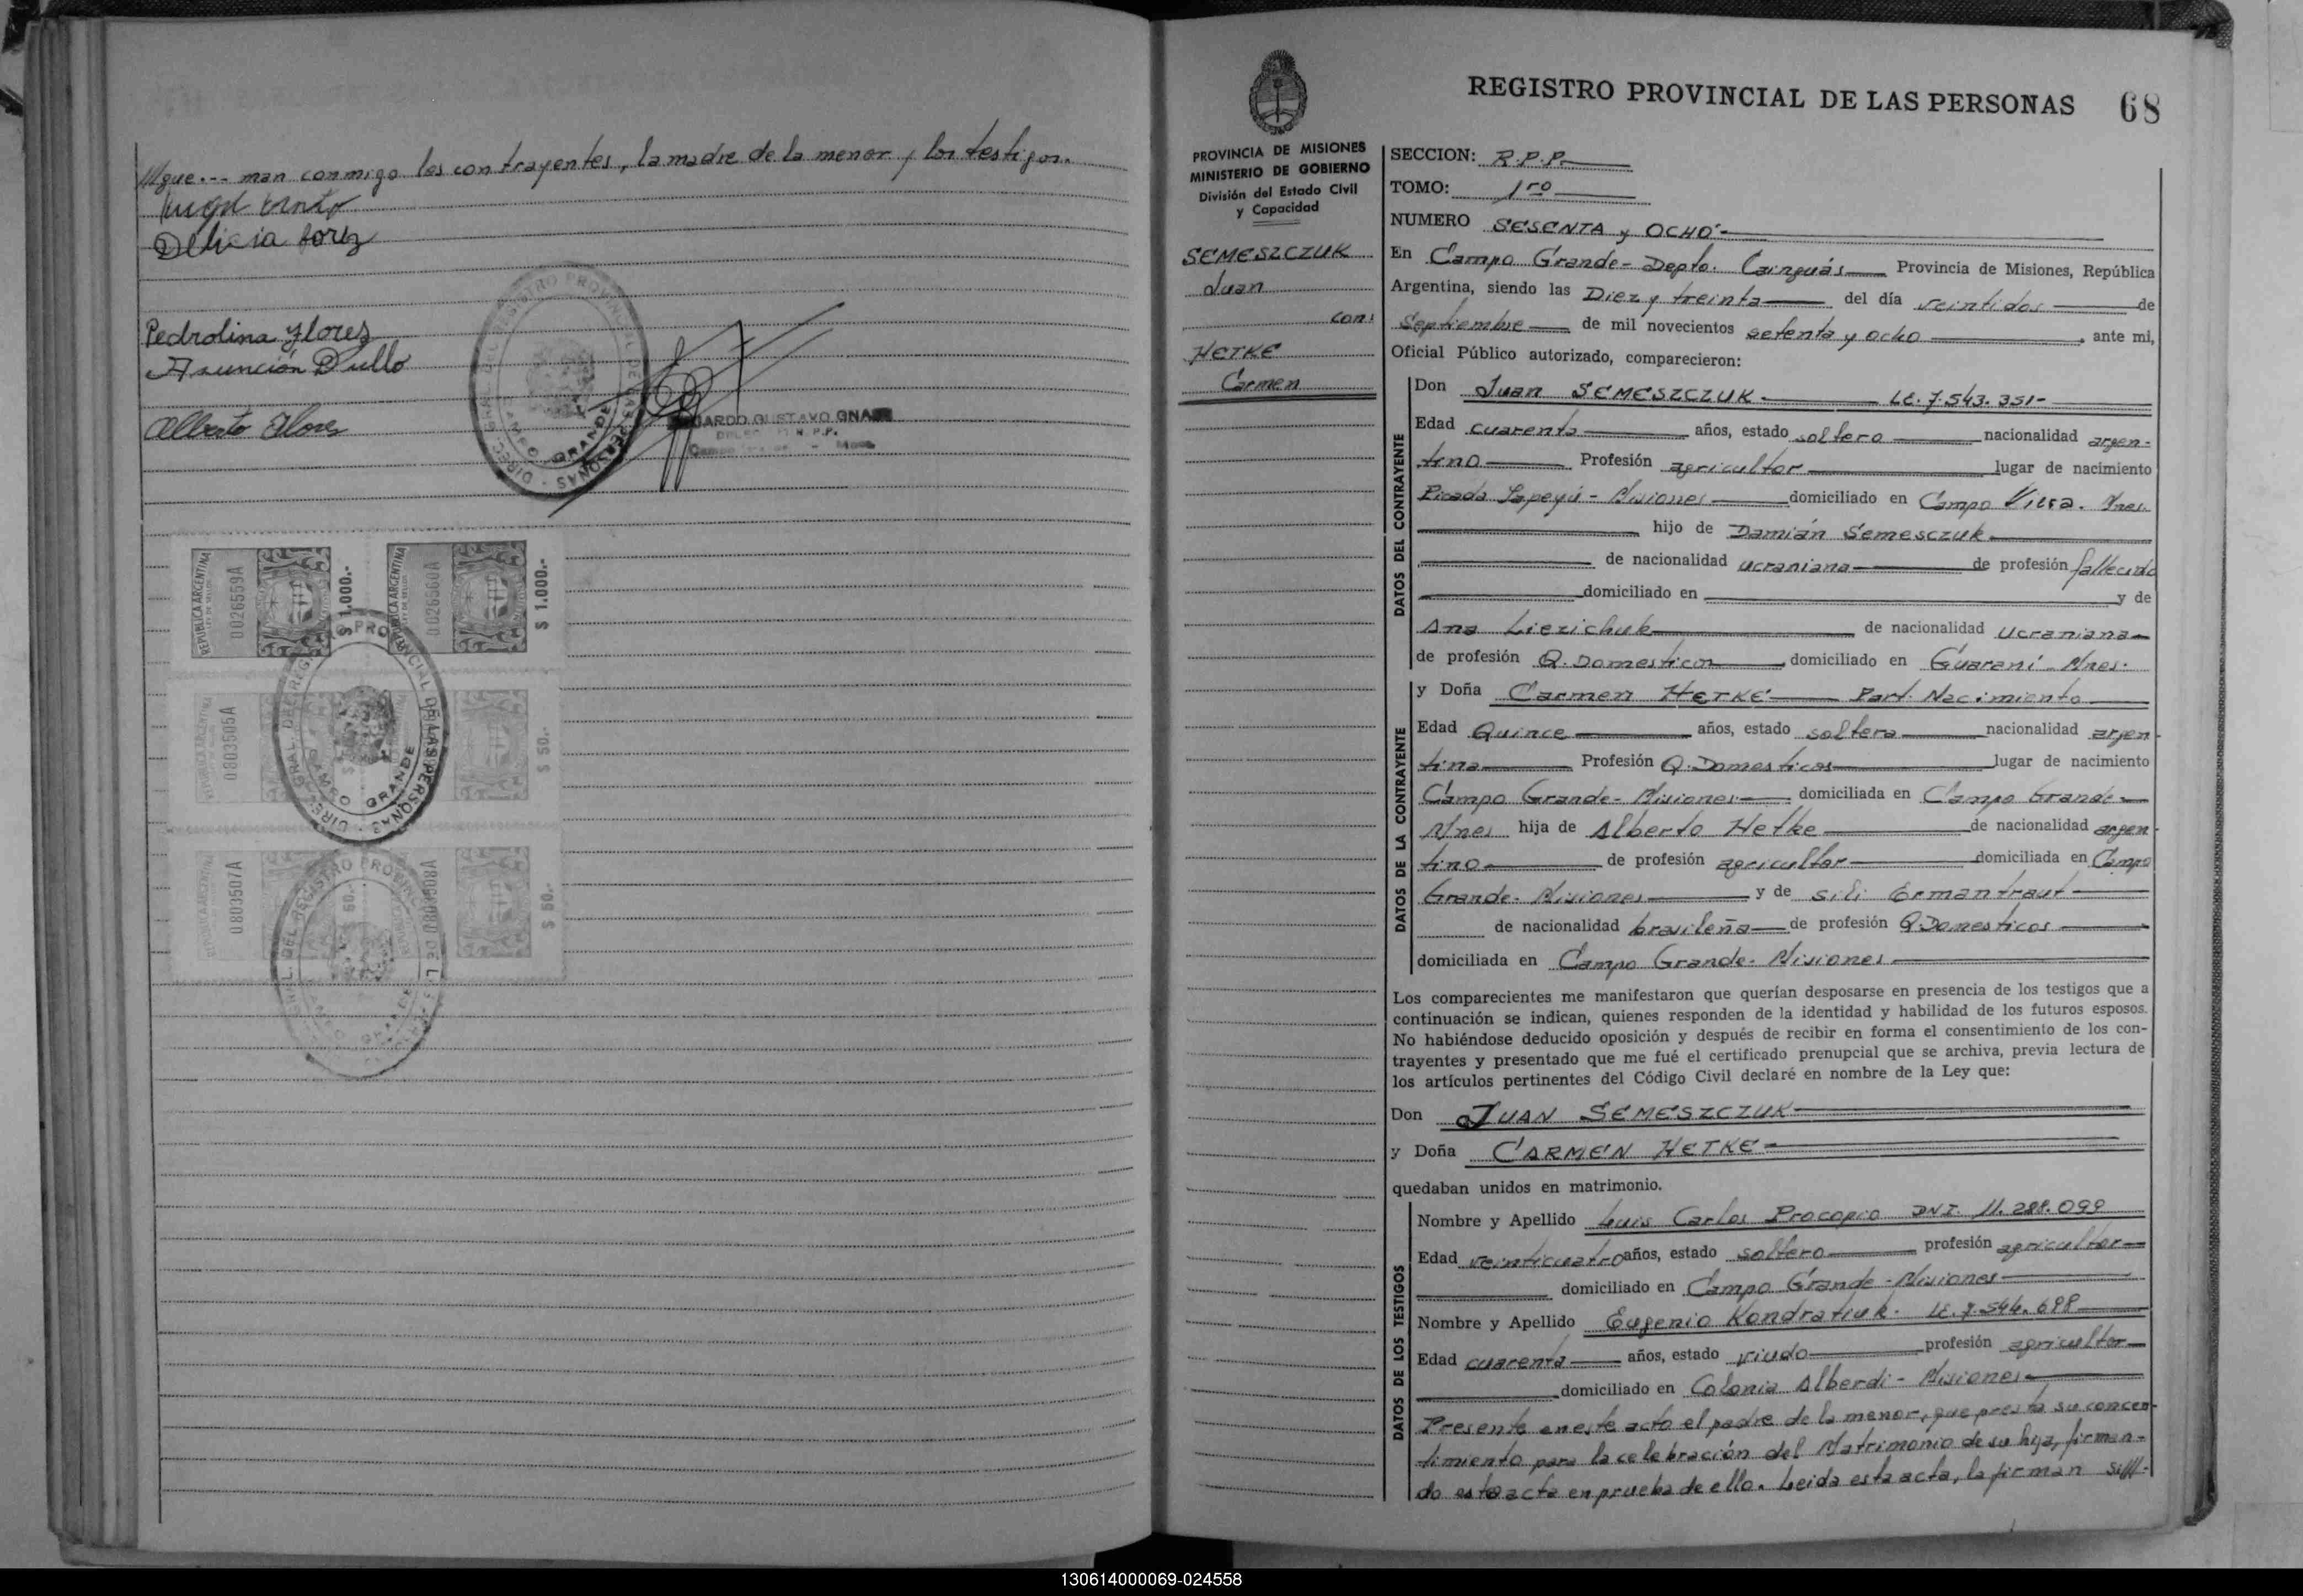 ///gue.-- man conmigo los contrayentes, la madre de la menor y los testigos.
Delicia
Pedrolina Flores
Asunción Dullo
Alberto Flores
DIREC. GRAL. DEL REGISTRO PROVINCIAL DE LAS PERSONAS
CAMPO GRANDE
ARDO GUSTAVO GNA
R.P.P.
REPUBLICA ARGENTINA
0026559A
$ 1.000.-
REPUBLICA ARGENTINA
0026560A
$ 1.000.-
REPUBLICA ARGENTINA
0803505A
$ 50.-
DIREC. GRAL. DEL REGISTRO PROVINCIAL DE LAS PERSONAS
CAMPO GRANDE
REPUBLICA ARGENTINA
0803507A
$ 50.-
0803508A
$ 50.-
REGISTRO PROVINCIAL DE LAS PERSONAS 68
PROVINCIA DE MISIONES
MINISTERIO DE GOBIERNO
División del Estado Civil
y Capacidad
SEMESZCZUK
Juan
con:
HETKE
Carmen
SECCION: R.P.P.
TOMO: 1ro
NUMERO SESENTA y OCHO-
En Campo Grande- Depto. Cainguás Provincia de Misiones, República
Argentina, siendo las Diez y treinta del día veintidos de
Septiembre de mil novecientos setenta y ocho, ante mi,
Oficial Público autorizado, comparecieron:
DATOS DEL CONTRAYENTE
Don Juan SEMESZCZUK- LE. 7.543.351-
Edad cuarenta años, estado soltero nacionalidad argen-
tino Profesión agricultor lugar de nacimiento
Picada Yapeyú - Misiones domiciliado en Campo Viera. Mnes.
hijo de Damián Semesczuk
de nacionalidad ucraniana de profesión fallecido
domiciliado en y de
Ana Liezichuk de nacionalidad ucraniana
de profesión Q. Domesticos domiciliado en Guaraní - Mnes.
DATOS DE LA CONTRAYENTE
y Doña Carmen HETKE Part. Nacimiento
Edad Quince años, estado soltera nacionalidad argen-
tina Profesión Q. Domesticos lugar de nacimiento
Campo Grande- Misiones domiciliada en Campo Grande-
Mnes hija de Alberto Hetke de nacionalidad argen-
tino de profesión agricultor domiciliada en Campo
Grande- Misiones y de Sili Ermantraut
de nacionalidad brasileña de profesión Q.Domesticos
domiciliada en Campo Grande- Misiones
Los comparecientes me manifestaron que querían desposarse en presencia de los testigos que a
continuación se indican, quienes responden de la identidad y habilidad de los futuros esposos.
No habiéndose deducido oposición y después de recibir en forma el consentimiento de los con-
trayentes y presentado que me fué el certificado prenupcial que se archiva, previa lectura de
los artículos pertinentes del Código Civil declaré en nombre de la Ley que:
Don JUAN SEMESZCZUK
y Doña CARMEN HETKE
quedaban unidos en matrimonio.
DATOS DE LOS TESTIGOS
Nombre y Apellido Luis Carlos Procopio DNI. 11.288.099
Edad veinticuatro años, estado soltero profesión agricultor
domiciliado en Campo Grande - Misiones
Nombre y Apellido Eugenio Kondratiuk. LE. 7.546.698
Edad cuarenta años, estado viudo profesión agricultor
domiciliado en Colonia Alberdi - Misiones
Presente en este acto el padre de la menor, que presta su concen-
timiento para la celebración del Matrimonio de su hija, firman-
do esta acta en prueba de ello. Leida esta acta, la firman sig///-
130614000069-024558